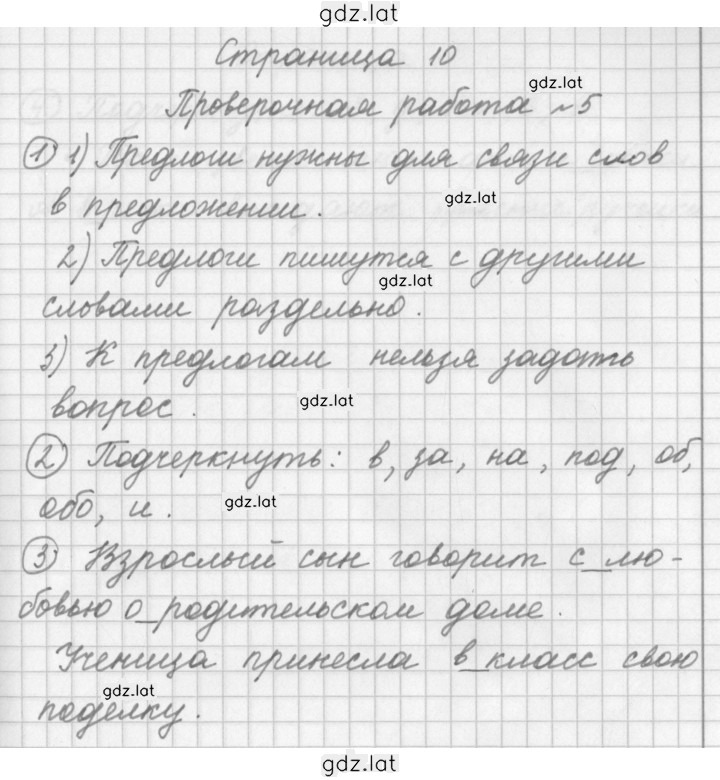 gdz.lat
Страница 10
gdz.lat
Проверочная работа №5
1) 1) Предлоги нужны для связи слов
gdz.lat
в предложении.
2) Предлоги пишутся с другими
gdz.lat
словами раздельно.
3) К предлогам нельзя задать
gdz.lat
вопрос.
2) Подчеркнуть: в, за, на, под, об,
gdz.lat
обо, и.
3) Взрослый сын говорит с_лю-
бовью о_родительском доме.
Ученица принесла в_класс свою
gdz.lat
поделку.
gdz.lat